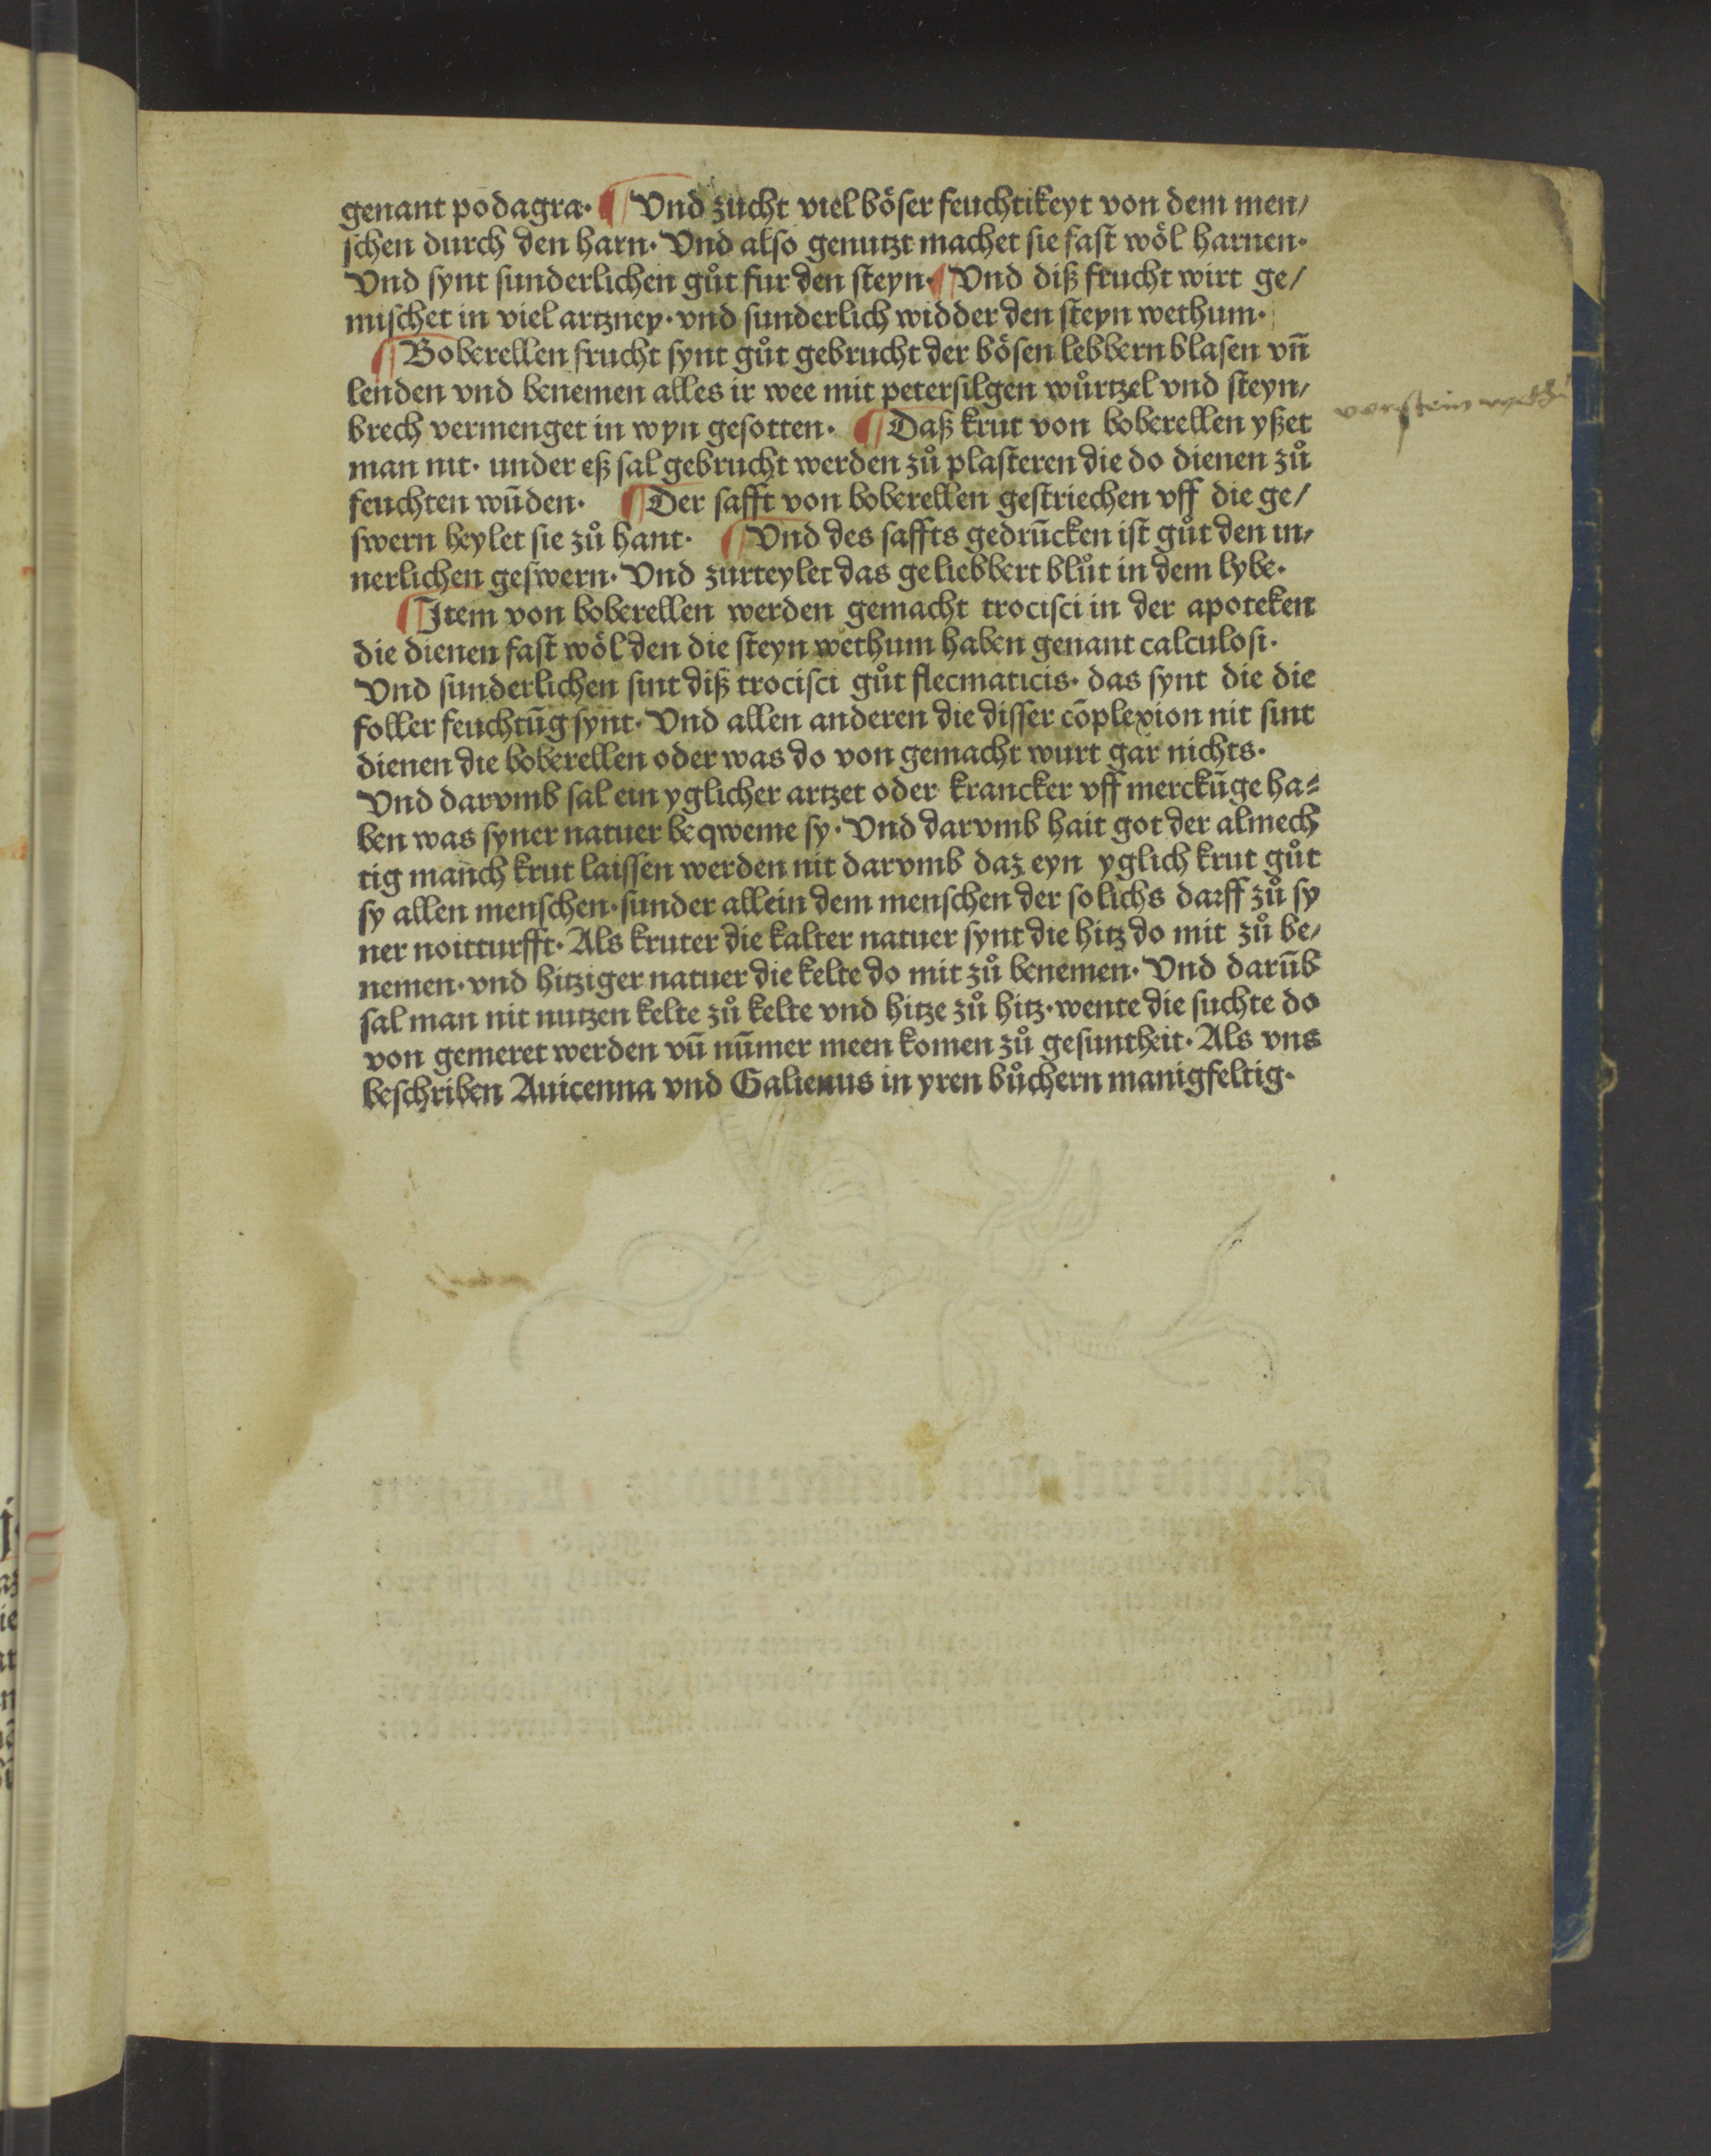 genant podagra· ¶ Vnd zücht viel böser feuchtikeyt von dem men/
schen durch den harn· Vnd also genutzt machet sie fast wöl harnen·
Vnd synt sunderlichen gůt fur den steyn· ¶ Vnd diß frucht wirt ge/
mischet in viel artzney· vnd sunderlich widder den steyn wethum·
¶ Boberellen frucht synt gůt gebrucht der bösen lebbern blasen vn̄
lenden vnd benemen alles ir wee mit petersilgen wůrtzel vnd steyn/
brech vermenget in wyn gesotten· ¶ Daß krut von boberellen yßet
man nit· under eß sal gebrucht werden zů plasteren die do dienen zů
feuchten wūden· ¶ Der safft von boberellen gestriechen vff die ge/
swern heylet sie zů hant· ¶ Vnd des saffts gedrūcken ist gůt den in/
nerlichen geswern· Vnd zurteylet das geliebbert blůt in dem lybe·
¶ Item von boberellen werden gemacht trocisci in der apoteken
die dienen fast wöl den die steyn wethum haben genant calculosi·
Vnd sunderlichen sint diß trocisci gůt flecmaticis· das synt die die
foller feuchtūg synt· Vnd allen anderen die disser cōplexion nit sint
dienen die boberellen oder was do von gemacht wurt gar nichts·
Vnd darvmb sal ein yglicher artzet oder krancker vff merckūge ha⸗
ben was syner natuer beqweme sy· Vnd darvmb hait got der almech
tig manch krut laissen werden nit darvmb daz eyn yglich krut gůt
sy allen menschen· sunder allein dem menschen der solichs darff zů sy
ner noitturfft· Als kruter die kalter natuer synt die hitz do mit zů be/
nemen· vnd hitziger natuer die kelte do mit zů benemen· Vnd darūb
sal man nit nutzen kelte zů kelte vnd hitze zů hitz· wente die suchte do
von gemeret werden vn̄ nūmer meen komen zů gesuntheit· Als vns
beschriben Auicenna vnd Galienus in yren bůchern manigfeltig·